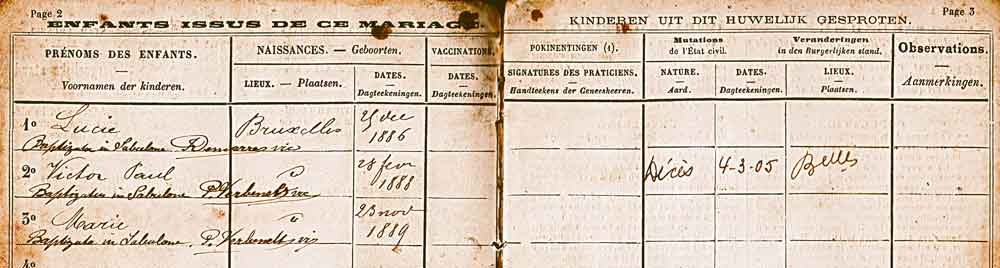 Page 2
ENFANTS ISSUS DE CE MARIAGE.
PRÉNOMS DES ENFANTS.
—
Voornamen der kinderen.
NAISSANCES. — Geboorten.
LIEUX. — Plaatsen.
DATES.
Dagteekeningen.
VACCINATIONS.
DATES.
Dagteekeningen.
1º Lucie Bruxelles 25 dec 1886
Baptizata in Sabulone
2º Victor Paul " 28 fevr 1888
Baptizatus in Sabulone P. Verbenelt vic
3º Marie " 23 nov 1889
Baptizata in Sabulone. P. Verbenelt vic
4º
KINDEREN UIT DIT HUWELIJK GESPROTEN.
Page 3
POKINENTINGEN (1).
SIGNATURES DES PRATICIENS.
Handteekens der Geneesheeren.
Mutations
de l'État civil.
Veranderingen
in den Burgerlijken stand.
NATURE.
Aard.
DATES.
Dagteekeningen.
LIEUX.
Plaatsen.
Observations.
—
Aanmerkingen.
Décès 4-3-05